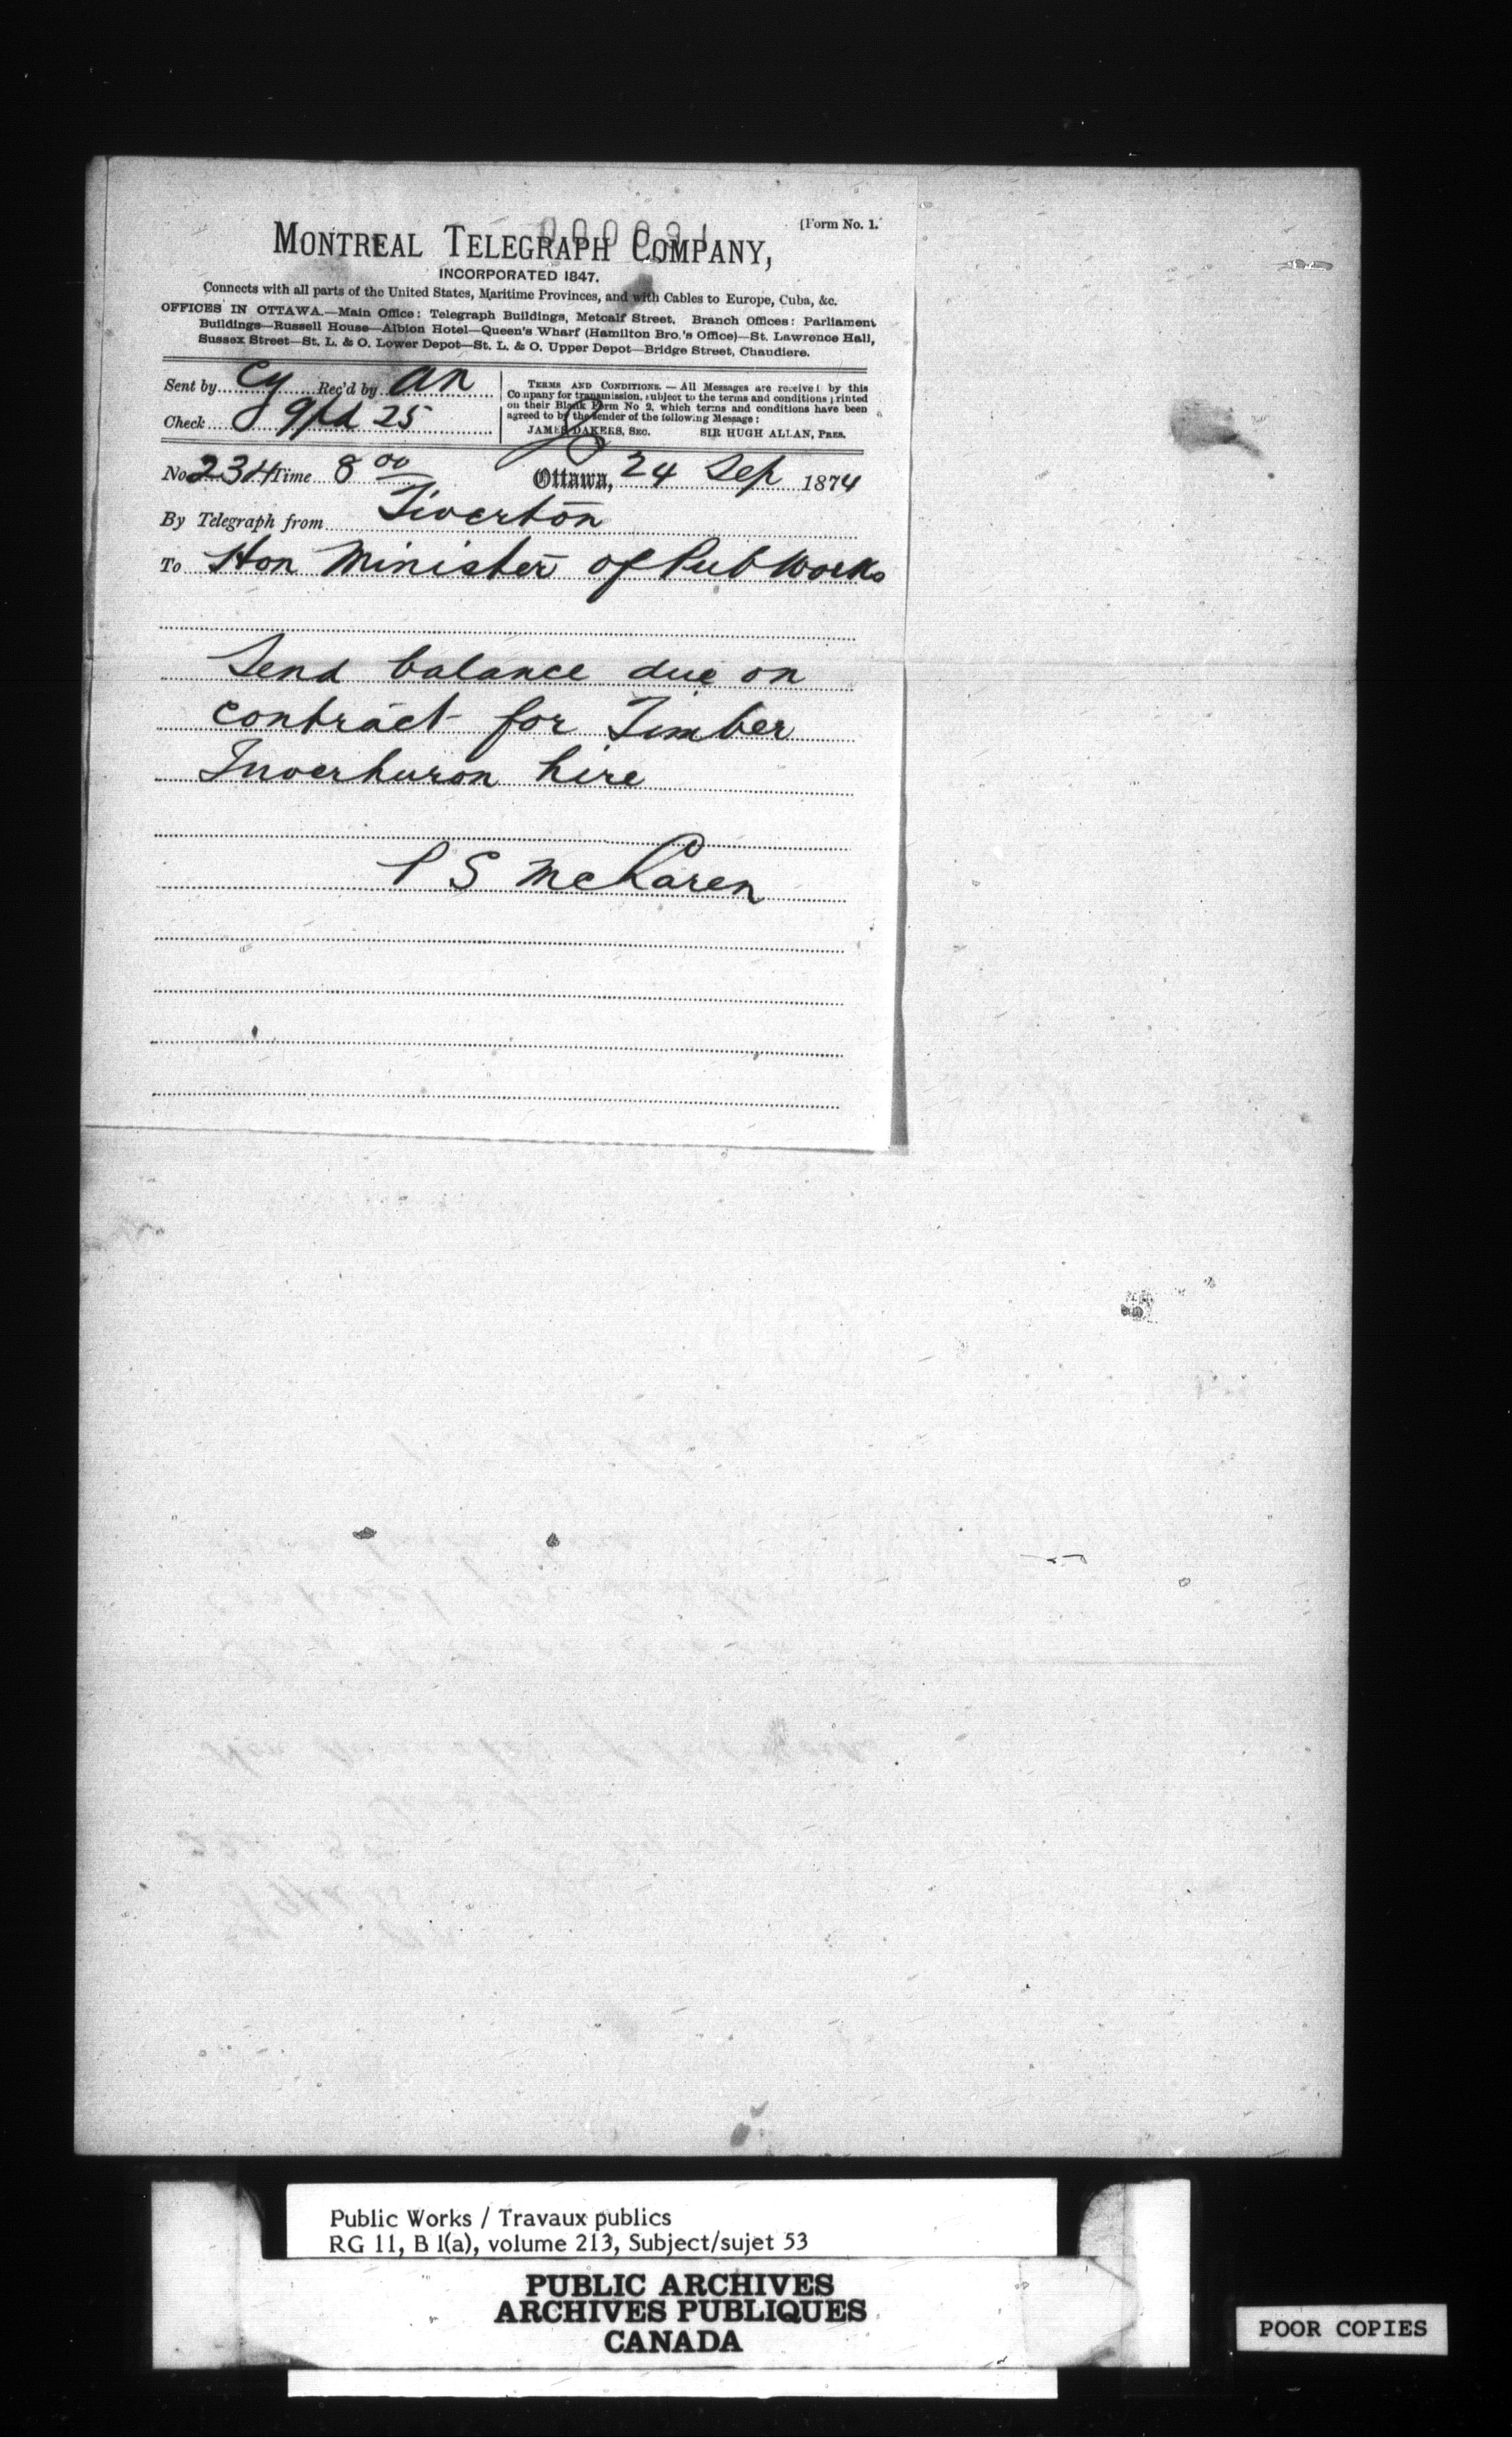 [Form No. 1.
MONTREAL TELEGRAPH COMPANY,
INCORPORATED 1847.
Connects with all parts of the United States, Maritime Provinces, and with Cables to Europe, Cuba, &c.
OFFICES IN OTTAWA.—Main Office: Telegraph Buildings, Metcalf Street. Branch Offices: Parliament
Buildings—Russell House—Albion Hotel—Queen's Wharf (Hamilton Bro.'s Office)—St. Lawrence Hall,
Sussex Street—St. L. & O. Lower Depot—St. L. & O. Upper Depot—Bridge Street, Chaudiere.
Sent by Cy Rec'd by an
Check 9pd 25
TERMS AND CONDITIONS.—All Messages are received by this
Company for transmission, subject to the terms and conditions printed
on their Blank Form No 2, which terms and conditions have been
agreed to by the sender of the following Message:
JAMES DAKERS, SEC. SIR HUGH ALLAN, PRES.
No 234 Time 8 00 Ottawa, 24 Sep 1874
By Telegraph from Tiverton
To Hon Minister of Pub Works
Send balance due on
contract for Timber
Inverhuron hire
P S McLaren
Public Works / Travaux publics
RG 11, B 1(a), volume 213, Subject/sujet 53
PUBLIC ARCHIVES
ARCHIVES PUBLIQUES
CANADA
POOR COPIES